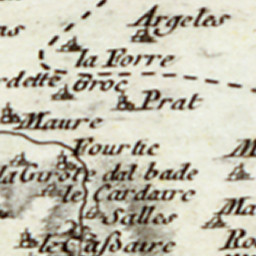 Argeles
as
la Forre
rdette
Broc
Prat
Maure
Fourtic
M
la Giroste
dal bade
le Cardaire
Ma
Salles
Ro
le Caßaire